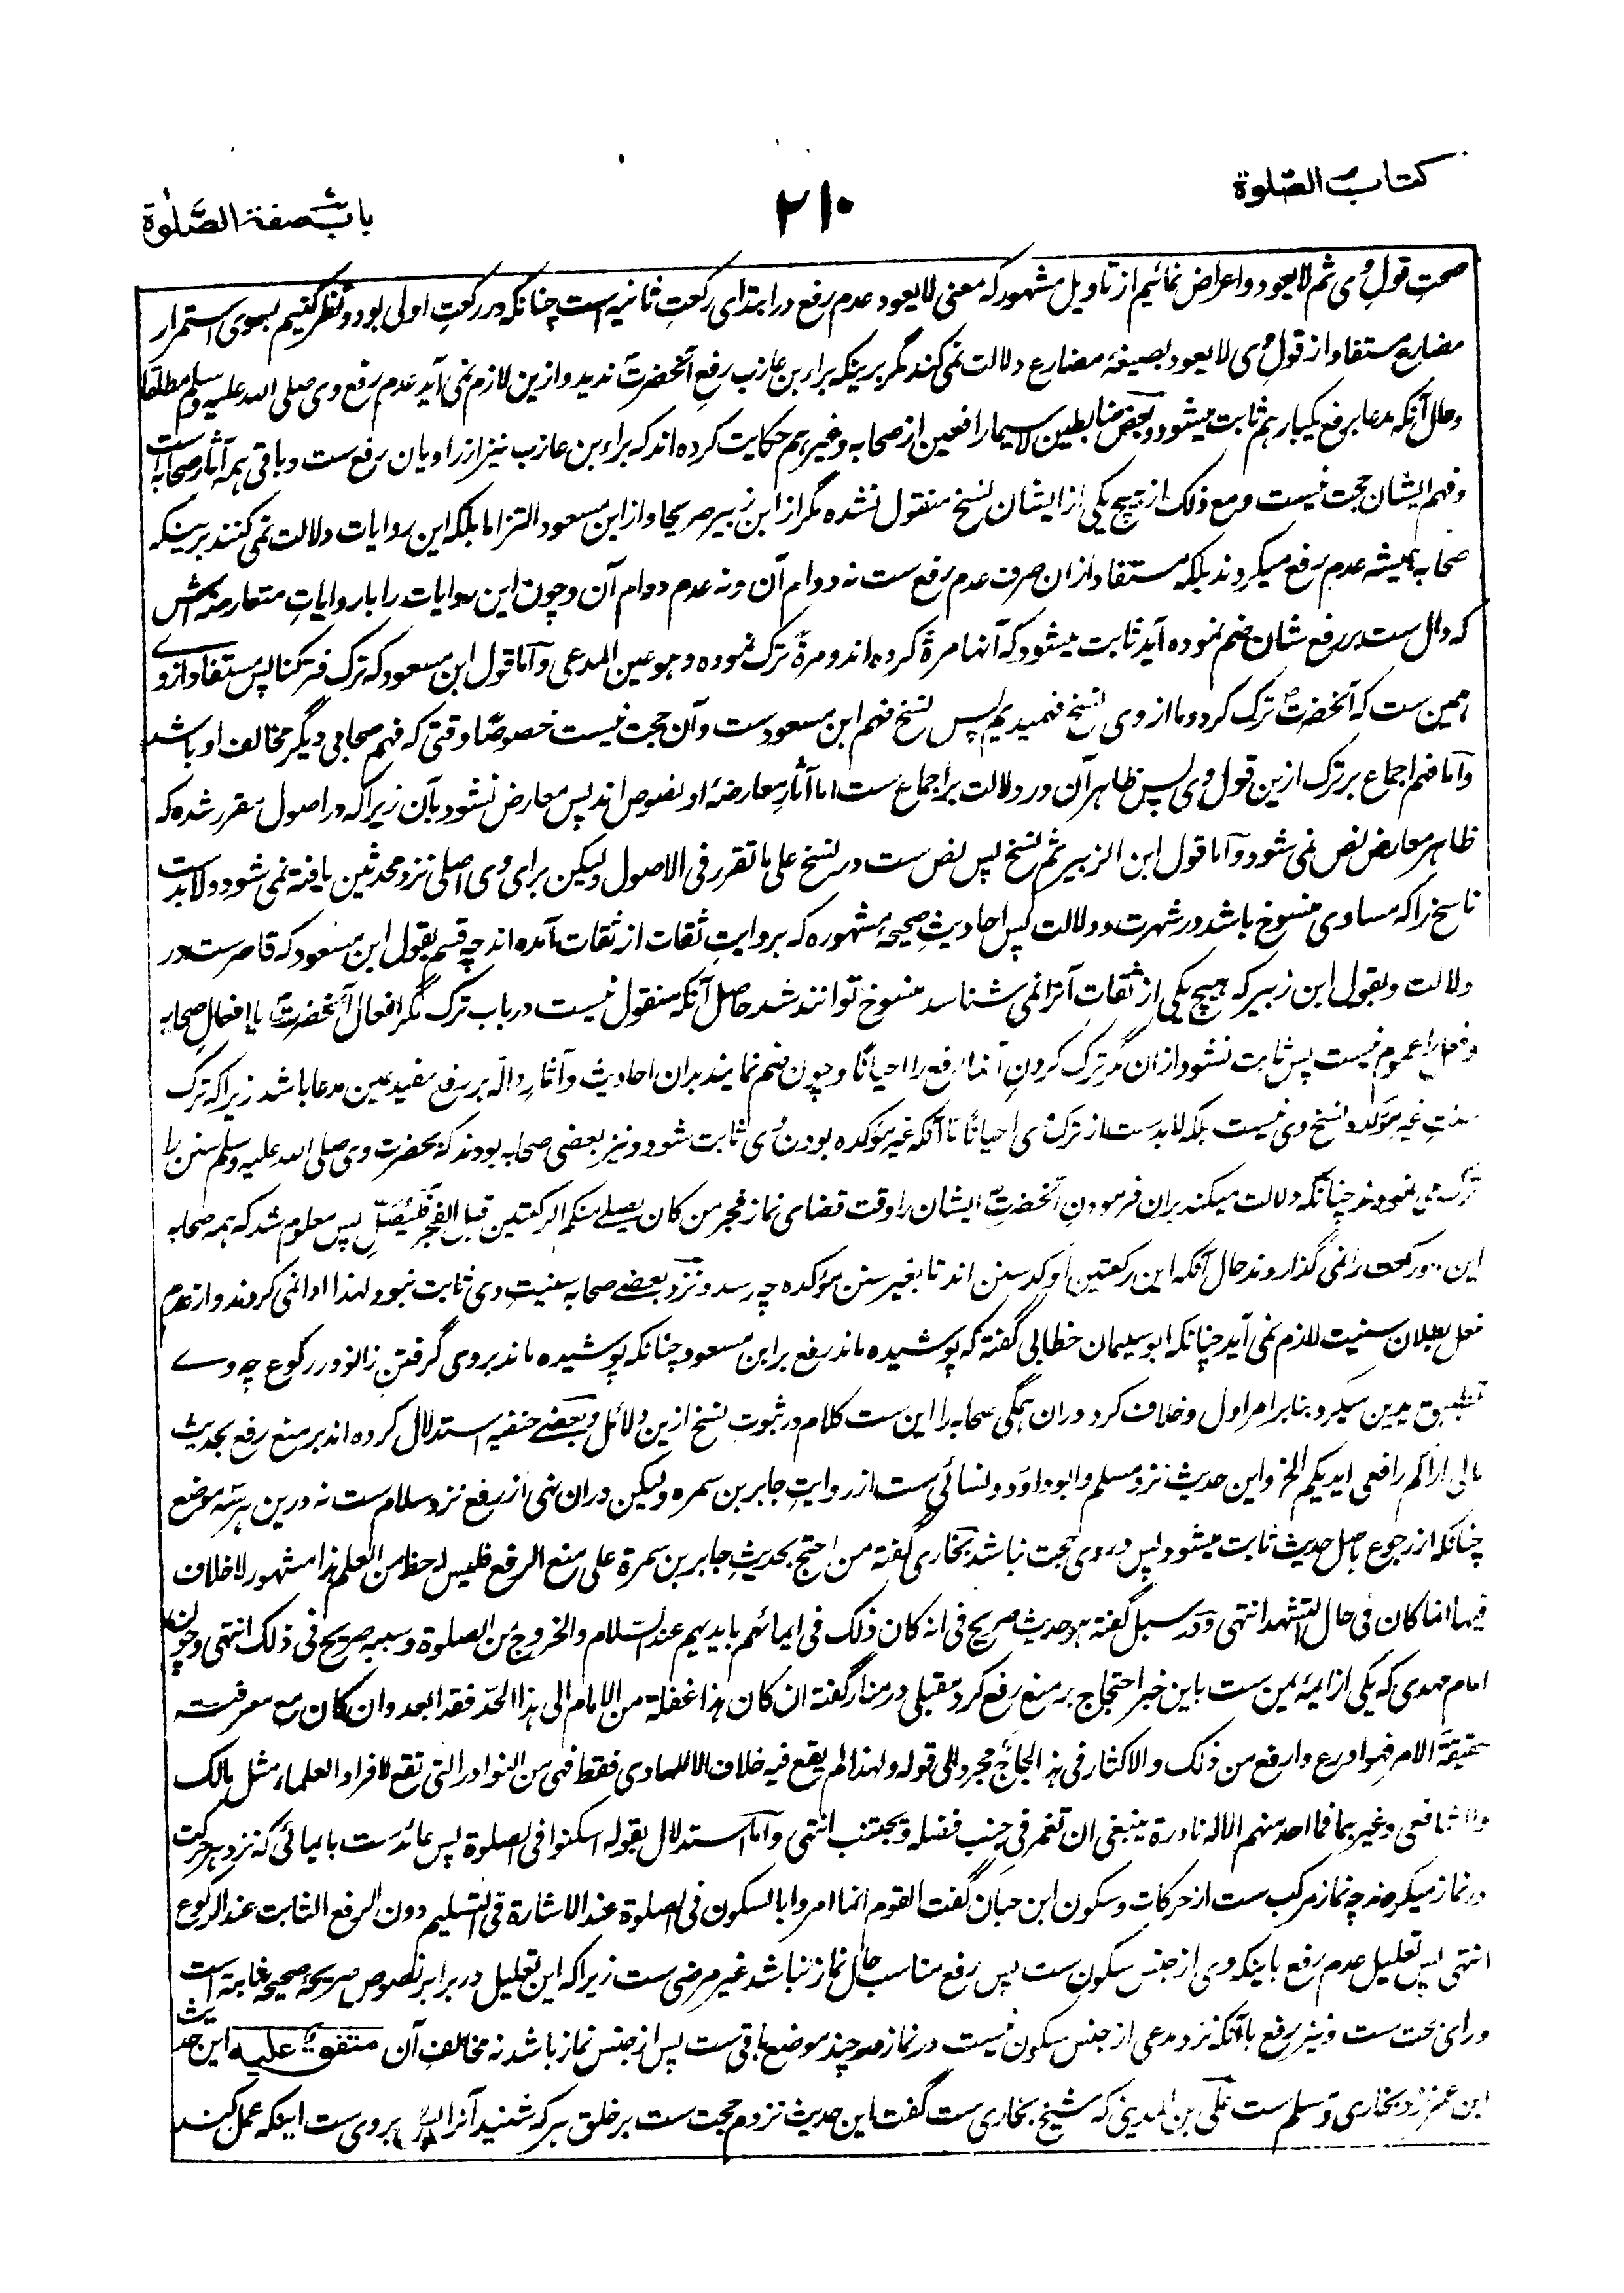 کتاب الصلوة
٢١٠
باب صفة الصلوة
صحت قول وی ثم لا یعود و اعراض نمائیم از تاویل مشهور که معنی لا یعود عدم رفع در ابتدای رکعت ثانیه است چنانکه در رکعت اولی بود و نظر کنیم بسوی استمرار
مضارع مستفاد از قول وی لا یعود بصیغهٔ مضارع دلالت نمی کند مگر برینکه براء بن عازب رفع آنحضرت ندید و ازین لازم نمی آید عدم رفع وی صلی الله علیه وسلم مطلقا
و حال آنکه مدعا برفع یکبار هم ثابت میشود و بعض ضابطین لا سیما رافعین از صحابه و غیرهم حکایت کرده اند که براء بن عازب نیز از راویان رفع ست و باقی همه آثار صحابه است
و فهم ایشان حجت نیست و مع ذلک از هیچ یکی از ایشان نسخ منقول نشده مگر از ابن زبیر صریحا و از ابن مسعود التزاما بلکه این روایات دلالت نمی کنند برینکه
صحابه همیشه عدم رفع میکردند بلکه مستفاد ازان صرف عدم رفع ست نه دوام آن و نه عدم دوام آن و چون این روایات را با روایات متعارضه اش
که دال ست بر رفع شان ضم نموده آید ثابت میشود که آنها مرة کرده اند و مرة ترک نموده و هو عین المدعی و اما قول ابن مسعود که ترک فترکنا پس مستفاد از وے
همین ست که آنحضرت ترک کرد و ما از وی نسخ فهمیدیم پس نسخ فهم ابن مسعود ست و آن حجت نیست خصوصًا وقتی که فهم صحابی دیگر مخالف او باشد
و اما فهم اجماع بر ترک ازین قول وی پس ظاهر آن در دلالت بر اجماع ست اما آثار معارضهٔ او نصوص اند پس معارض نشود بآن زیرا که در اصول مقرر شده که
ظاهر معارض نص نمی شود و اما قول ابن الزبیر ثم نسخ پس نص ست در نسخ علی ما تقرر فی الاصول ولیکن برای وی اصلی نزد محدثین یافته نمی شود و لابد ست
ناسخ را که مساوی منسوخ باشد در شهرت و دلالت پس احادیث صحیحهٔ مشهوره که بروایت ثقات از ثقات آمده اند چه قسم بقول ابن مسعود که قاصر ست در
دلالت و بقول ابن زبیر که هیچ یکی از ثقات آنرا نمی شناسد منسوخ توانند شد حاصل آنکه منقول نیست در باب ترک مگر افعال آنحضرت یا افعال صحابه
و فعل را عموم نیست پس ثابت نشود ازان مگر ترک کردن آنها رفع را احیانًا و چون ضم نمایند بدان احادیث و آثار دالّه بر رفع مفید عین مدعا باشد زیرا که ترک
سنت غیر مؤکده نسخ وی نیست بلکه لابد ست از ترک وی احیانًا تا آنکه غیر مؤکده بودن وی ثابت شود و نیز بعضی صحابه بودند که بحضرت وی صلی الله علیه وسلم سنن را
ترک می نمودند چنانکه دلالت میکند بران فرمودن آنحضرت ایشان را وقت قضای نماز فجر من کان یصلے منکم الرکعتین قبل الفجر فلیصل پس معلوم شد که همه صحابه
این دو رکعت را نمی گذاروند حال آنکه این رکعتین اوکد سنن اند تا بغیر سنن مؤکده چه رسد و نزد بعضے صحابه سنیت وی ثابت نبود لهذا ادا نمی کردند و از عدم
فعل بطلان سنیت لازم نمی آید چنانکه ابو سلیمان خطابی گفته که پوشیده ماند رفع بر ابن مسعود چنانکه پوشیده ماند بروی گرفتن زانو در رکوع چه وے
تطبیق یدین میکرد بنا بر امر اول و خلاف کرد دران همگی صحابه را این ست کلام در ثبوت نسخ ازین دلائل و بعضے حنفیه استدلال کرده اند بر منع رفع بحدیث
مالی اراکم رافعی ایدیکم الخ و این حدیث نزد مسلم و ابو داؤد و نسائی ست از روایت جابر بن سمره ولیکن دران نهی از رفع نزد سلام ست نه درین هر سه موضع
چنانکه از رجوع باصل حدیث ثابت میشود پس در وی حجت نباشد بخاری گفته من احتج بحدیث جابر بن سمرة علی منع الرفع فلیس له حظ من العلم هذا مشهور لا خلاف
فیه انما کان فی حال التشهد انتهی و در سبل گفته هو حدیث صریح فی انه کان ذلک فی ایمائهم بایدیهم عند السلام والخروج من الصلوة و سببه صریح فی ذلک انتهی و چون
امام مهدی که یکی از ایمهٔ یمن ست باین خبر احتجاج بر منع رفع کرد مقبلی در منار گفته ان کان هذا غفلة من الامام الی هذا الحد فقد ابعد وان کان مع معرفته
حقیقة الامر فهو اورع وارفع من ذلک والاکثار فی هذا لجاج مجرد الی قوله ولهذا لم یقع فیه خلاف الا للهادی فقط فهی من النوادر التی تقع لافراد العلماء مثل مالک
والشافعی وغیرهما فما احد منهم الا له نادرة ینبغی ان تغمر فی جنب فضله ویجتنب انتهی و اما استدلال بقوله اسکنوا فی الصلوة پس عائد ست بایمائی که نزد هر حرکت
در نماز میکردند چه نماز مرکب ست از حرکات و سکون ابن حبان گفت القوم انما امروا بالسکون فی الصلوة عند الاشارة فی التسلیم دون الرفع الثابت عند الرکوع
انتهی پس تعلیل عدم رفع باینکه وی از جنس سکون ست پس رفع مناسب حال نماز نباشد غیر مرضی ست زیرا که این تعلیل در برابر نصوص صریحهٔ صحیحه بمثابه است
و رای بحت ست و نیز رفع با آنکه نزد مدعی از جنس سکون نیست در نماز در چند موضع باقی ست پس از جنس نماز باشد نه مخالف آن متفق علیه این حدیث
ابن عمر نزد بخاری و مسلم ست علی بن المدینی که شیخ بخاری ست گفت این حدیث نزدم حجت ست بر خلق هر که شنید آنرا پس بروی ست اینکه عمل کند